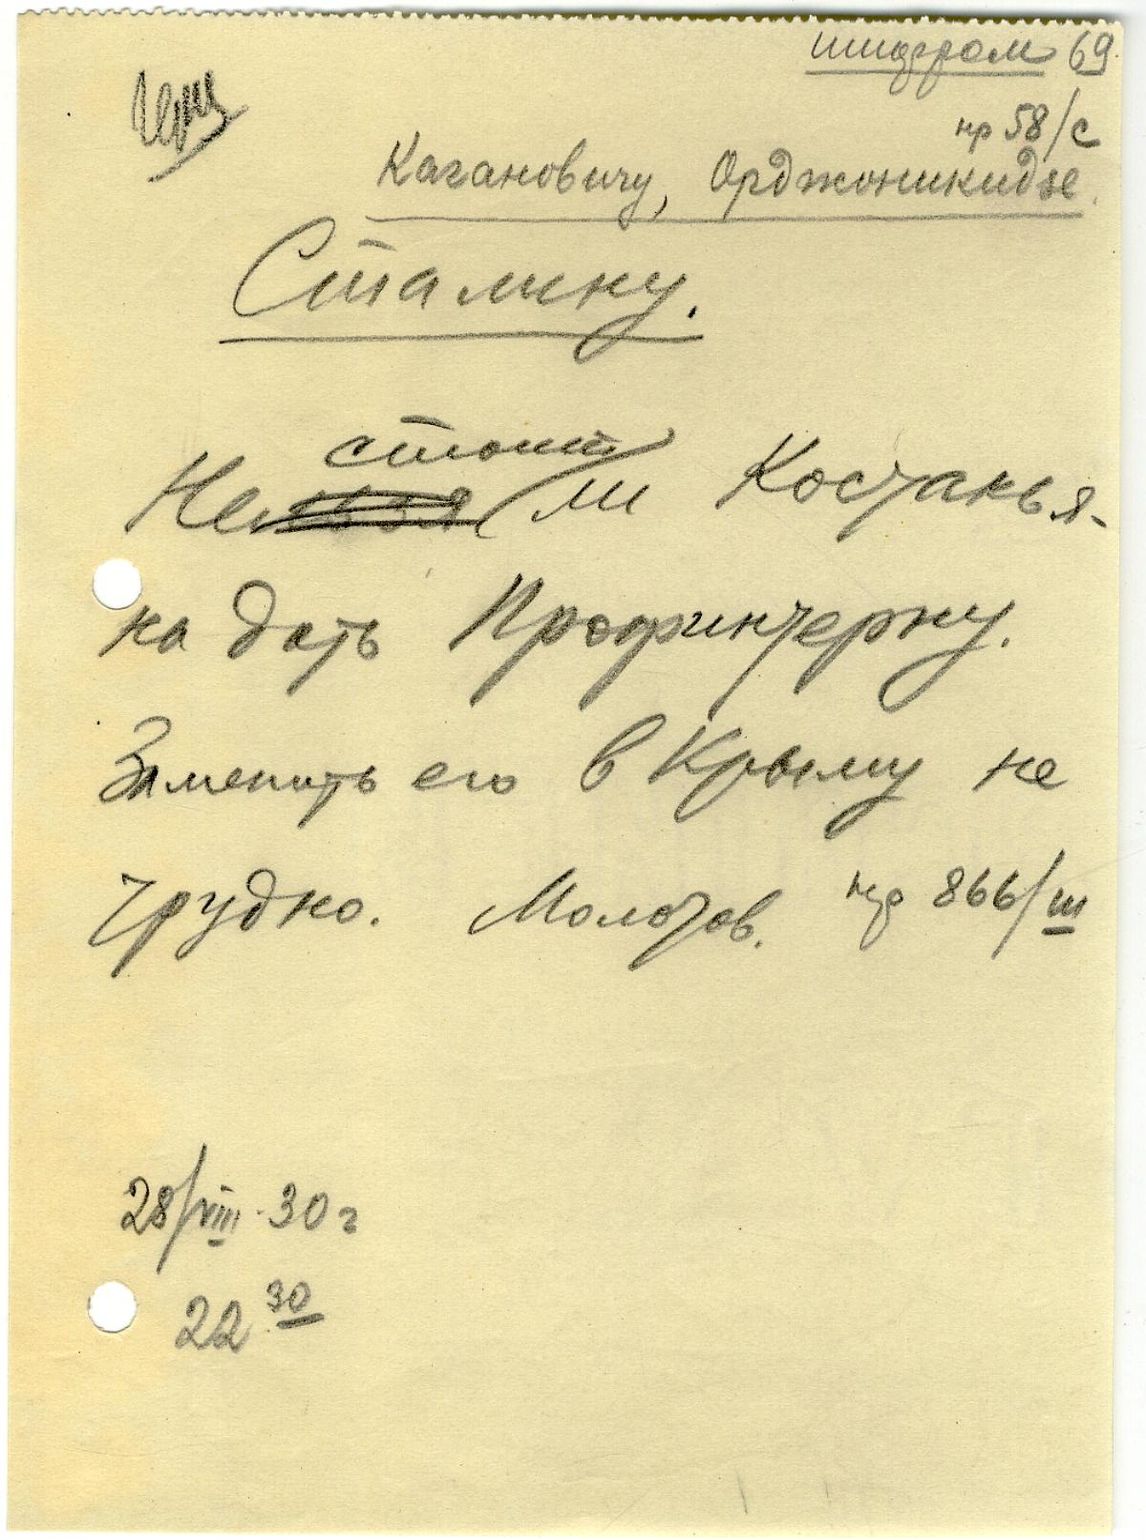 шифром 69
нр 58/с
Кагановичу, Орджоникидзе.
Сталину.
стоит
Не ли Костанья-
на дать Профинтерну.
Заменить его в Крыму не
трудно. Молотов. нр 866/ш
28/VIII 30 г
22 30